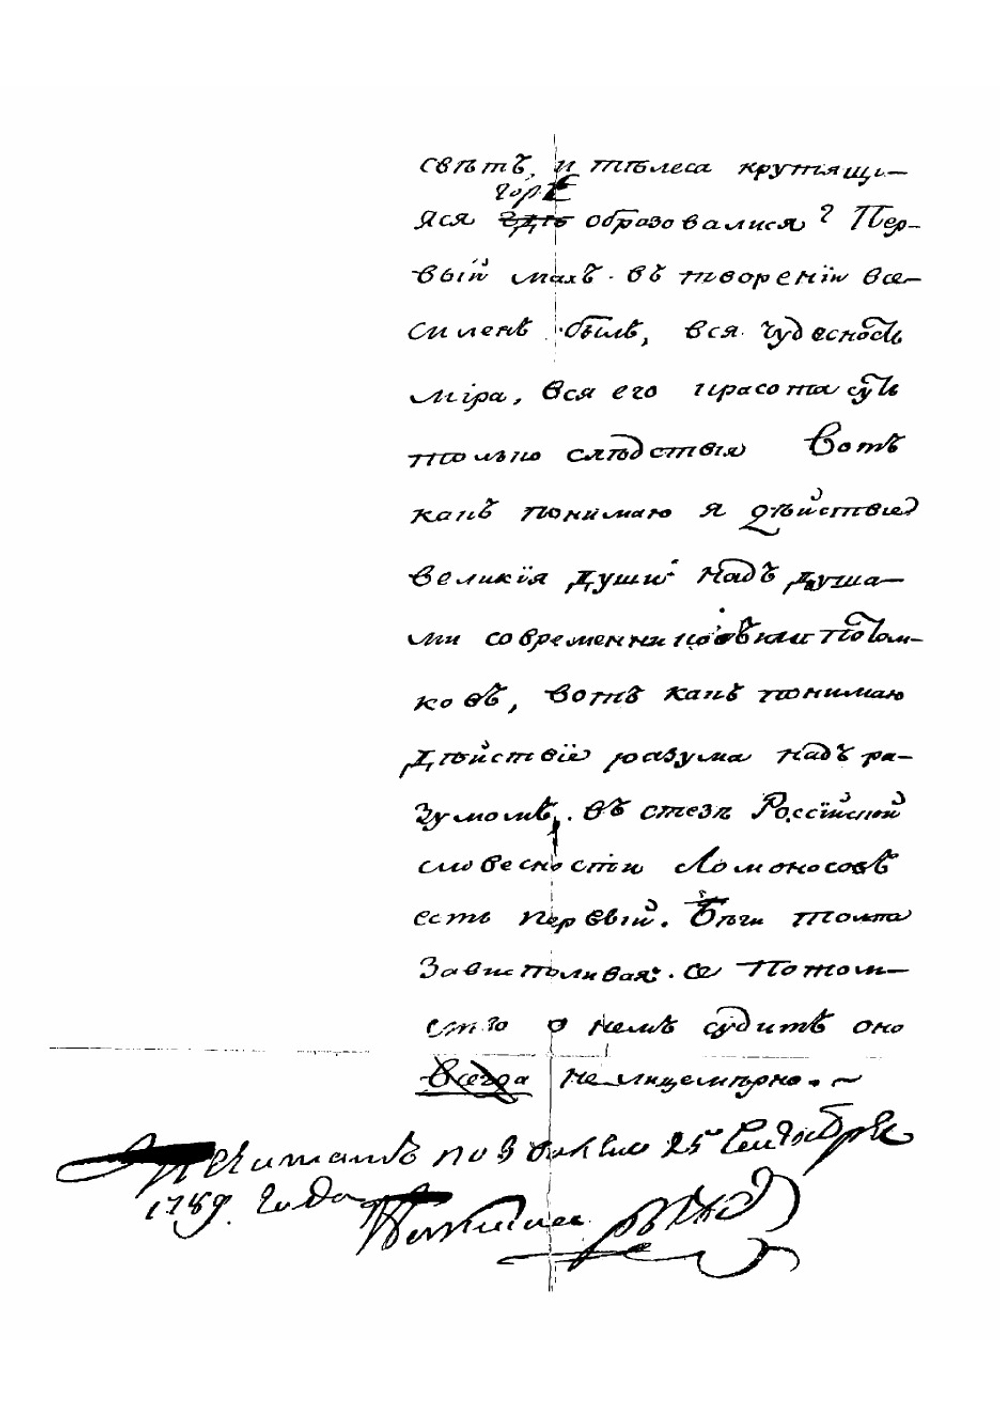 свѣтъ, и тѣлеса крутящі-
горѣ
яся гдѣ образовалися? Пер-
вый махъ въ твореніи все-
силенъ былъ, вся чудесность
міра, вся его красота суть
только слѣдствія Вотъ
какъ понимаю я дѣйствіе
великія души надъ душа-
ми современниковъ или потом-
ковъ, вотъ какъ понимаю
дѣйствіе разума надъ ра-
зумомъ. въ стезѣ Россійской
словесности Ломоносовъ
есть первый. Бѣги толпа
Завистливая. се Потом-
ство о немъ судитъ оно
Всегда нелицемѣрно. ~
читалъ 25 Сентября
1789. Года